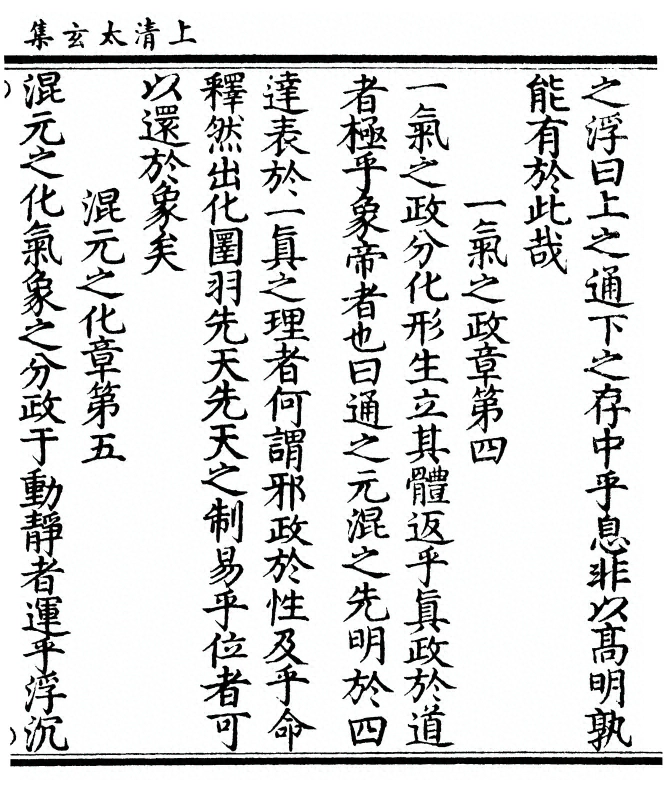 上清太玄集
之浮曰上之通下之存中乎息非以高明孰
能有於此哉
一氣之政章第四
一氣之政分化形生立其體返乎眞政於道
者極乎象帝者也曰通之元混之先明於四
達表於一眞之理者何謂邪政於性及乎命
釋然出化圛羽先天先天之制易乎位者可
以還於象矣
混元之化章第五
混元之化氣象之分政于動靜者運乎浮沉